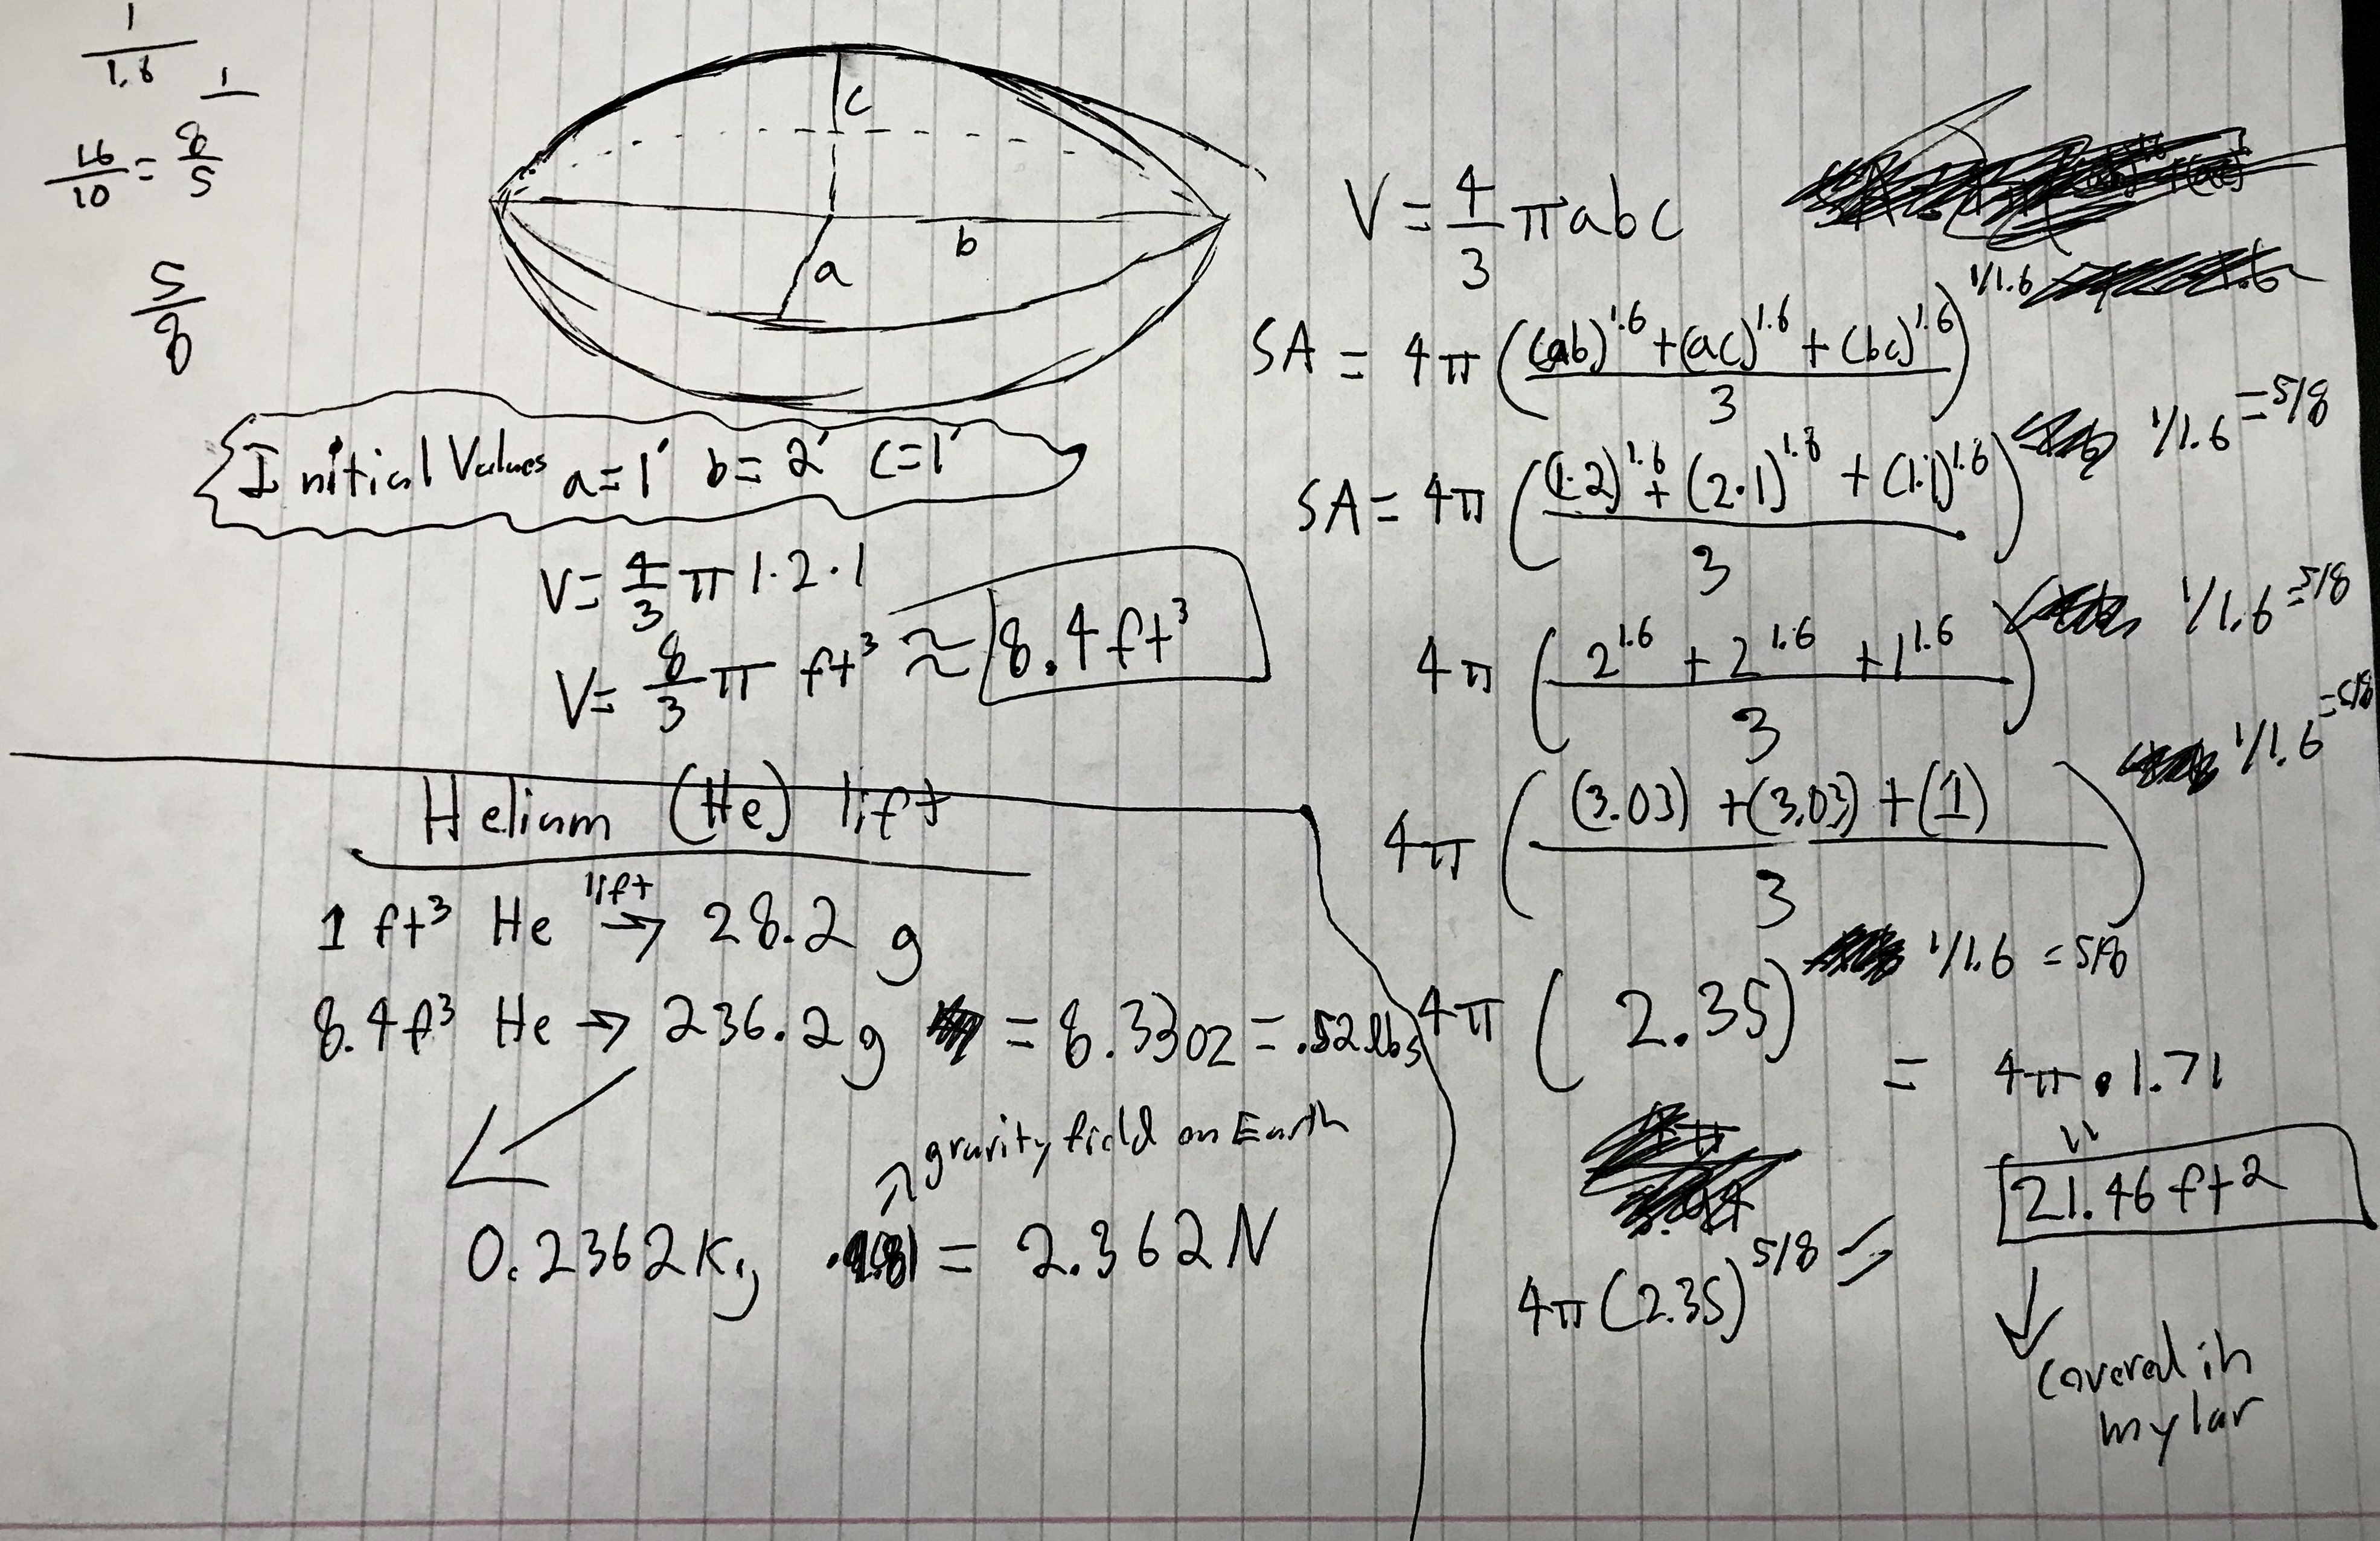 1/1.6
1
16/10 = 8/5
5/8
c
b
a
Initial Values a=1' b=2' c=1'
V= 4/3 π 1·2·1
V= 8/3 π ft³ ≈ 8.4ft³
Helium (He) lift
1 ft³ He lift→ 28.2 g
8.4ft³ He → 236.2g = 8.33oz = .52lbs
gravity field on Earth
0.2362Kg = 2.362N
V = 4/3 πabc
SA = 4π ( (ab)^1.6 + (ac)^1.6 + (bc)^1.6 / 3 )^1/1.6
SA = 4π ( (1·2)^1.6 + (2·1)^1.6 + (1·1)^1.6 / 3 ) 1/1.6 = 5/8
4π ( 2^1.6 + 2^1.6 + 1^1.6 / 3 ) 1/1.6 = 5/8
4π ( (3.03) + (3.03) + (1) / 3 ) 1/1.6 = 5/8
4π ( 2.35 ) 1/1.6 = 5/8
= 4π · 1.71
21.46 ft²
4π(2.35)^5/8 =
Covered in
mylar